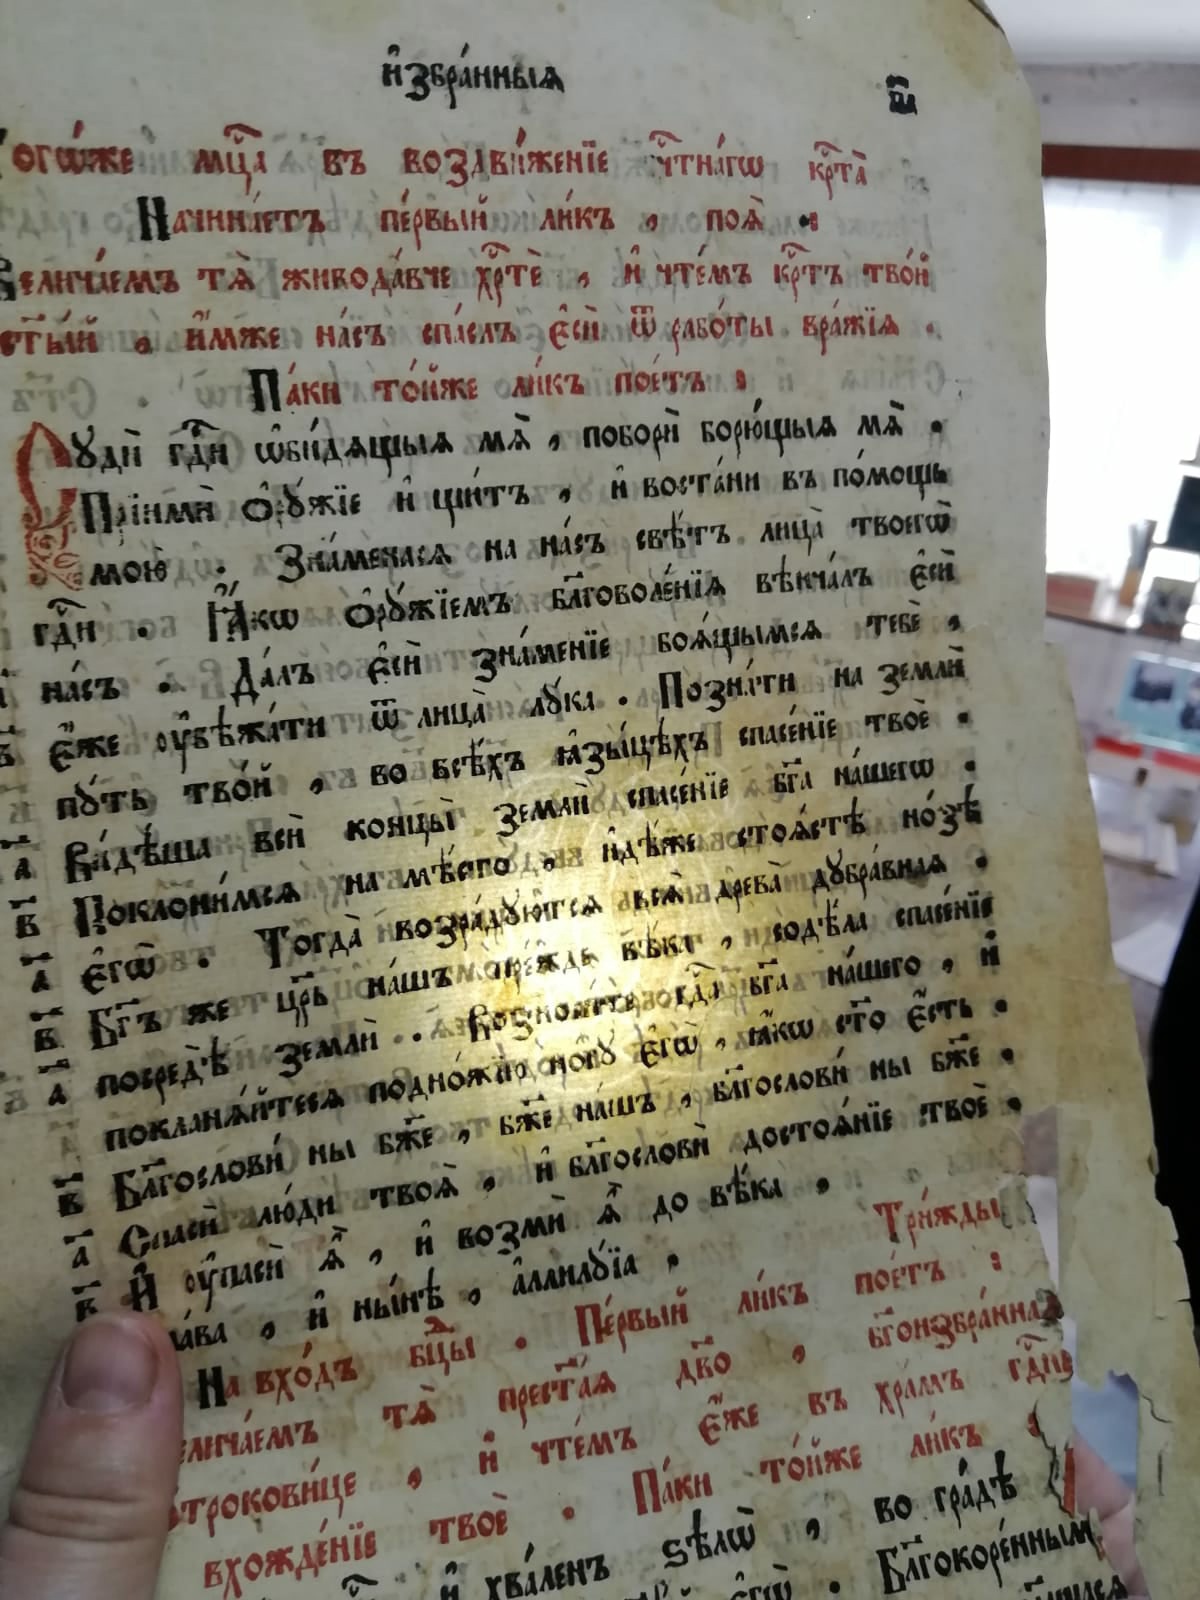 и҆збра́нныѧ
тогѡ́же мц҃а въ воздви́женїе чт҃на́гѡ кр҃та̀
Начина́етъ пе́рвый ли́къ , поѧ̀ :
Велича́емъ тѧ̀ живода́вче хр҃тѐ , и҆ чте́мъ кр҃тъ тво́й
ст҃ы́й , и҆́мже на́съ спа́слъ є҆сѝ ѿ рабо́ты вра́жїѧ .
Па́ки то́йже ли́къ пое́тъ :
Сꙋдѝ гдⷭ҇и ѡ҆би́дѧщыѧ мѧ̀ , поборѝ борю́щыѧ мѧ̀ .
Прїимѝ ѻ҆рꙋ́жїе и҆ щи́тъ , и҆ воста́ни въ по́мощь
мою̀ . Зна́менасѧ на на́съ свѣ́тъ лица̀ твоегѡ̀
гдⷭ҇и . Ꙗ҆́кѡ ѻ҆рꙋ́жїемъ бл҃говоле́нїѧ вѣнча́лъ є҆сѝ
на́съ . Да́лъ є҆сѝ зна́менїе боѧ́щымсѧ тебѐ ,
є҆́же ᲂу҆бѣжа́ти ѿ лица̀ лꙋ́ка . Позна́ти на землѝ
пꙋ́ть тво́й , во всѣ́хъ ꙗ҆зы́цѣхъ спасе́нїе твоѐ .
а҃ Ви́дѣша всѝ концы̀ землѝ спасе́нїе бг҃а на́шегѡ .
в҃ Поклони́мсѧ на мѣ́сто , и҆дѣ́же стоѧ́стѣ но́зѣ
а҃ є҆гѡ̀ . Тогда̀ возра́дꙋютсѧ всѧ̀ древа̀ дꙋбра́внаѧ .
в҃ Бг҃ъ же цр҃ь на́шъ пре́жде вѣ́ка , содѣ́ла спасе́нїе
а҃ посредѣ̀ землѝ . Возноси́те гдⷭ҇а бг҃а на́шего , и҆
покланѧ́йтесѧ подно́жїю но́гꙋ є҆гѡ̀ , ꙗ҆́кѡ ст҃о є҆́сть .
в҃ Бл҃гословѝ ны бж҃е , бж҃е на́шъ , бл҃гословѝ ны бж҃е .
а҃ Спасѝ лю́ди твоѧ̀ , и҆ бл҃гословѝ достоѧ́нїе твоѐ .
в҃ И҆ ᲂу҆пасѝ ѧ҆̀ , и҆ возмѝ ѧ҆̀ до вѣ́ка .
ла́ва , и҆ ны́нѣ , а҆ллилꙋ́їа . Три́жды
На вхо́дъ бц҃ы . Пе́рвый ли́къ пое́тъ :
елича́емъ тѧ̀ прест҃а́ѧ дв҃о , бг҃оизбра́ннаѧ
ѻтрокови́це , и҆ чте́мъ є҆́же въ хра́мъ гдⷭ҇нь
вхожде́нїе твоѐ . Па́ки то́йже ли́къ :
и҆ хва́ленъ ѕѣлѡ̀ , во гра́дѣ
є҆гѡ̀ . Бл҃гокоре́ннымъ